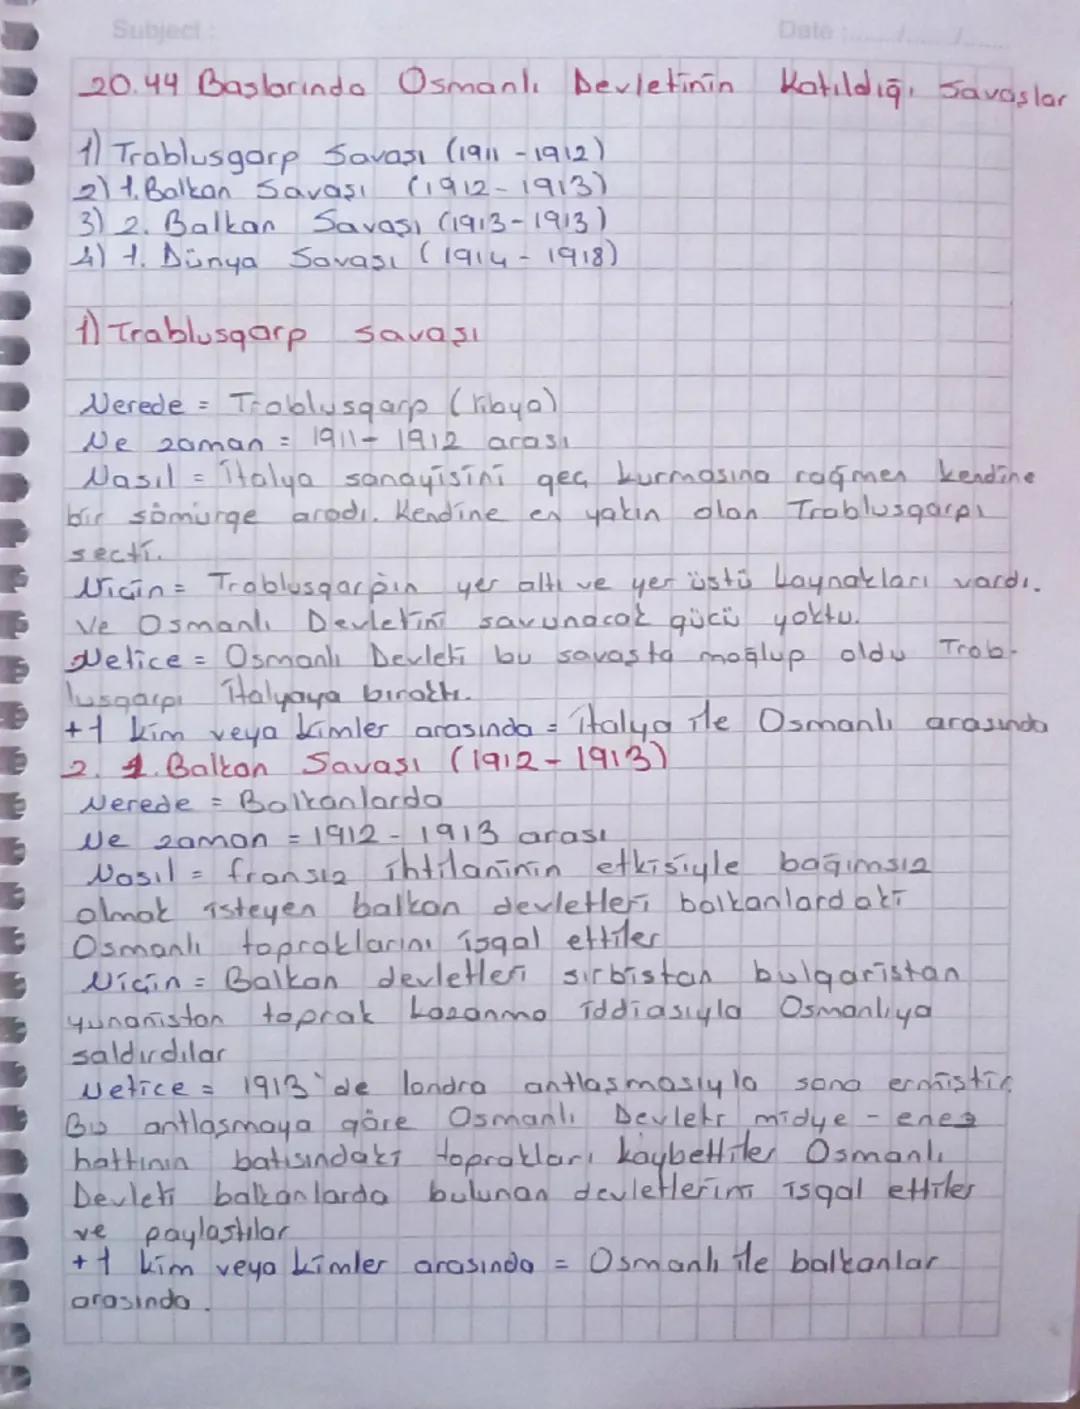 Subject:
Date:......./......./.......
20.44 Başlarında Osmanlı Devletinin Katıldığı Savaşlar
1) Trablusgarp Savaşı (1911 - 1912)
2) 1. Balkan Savaşı (1912 - 1913)
3) 2. Balkan Savaşı (1913-1913)
4) 1. Dünya Savaşı (1914 - 1918)
1) Trablusgarp savaşı
Nerede = Trablusgarp (Libya)
Ne zaman = 1911 - 1912 arası
Nasıl = italya sanayisini geç kurmasına rağmen kendine
bir sömürge aradı. Kendine en yakın olan Trablusgarpı
seçti.
Niçin = Trablusgarpın yer altı ve yer üstü kaynakları vardı.
Ve Osmanlı Devletini savunacak gücü yoktu.
Netice = Osmanlı Devleti bu savaşta mağlup oldu Trab-
lusgarpı italyaya bıraktı.
+1 kim veya kimler arasında = italya ile Osmanlı arasında
2. 1. Balkan Savaşı (1912 - 1913)
Nerede = Balkanlarda
Ne zaman = 1912 - 1913 arası
Nasıl = fransız ihtilaninin etkisiyle bağımsız
olmak isteyen balkan devletleri balkanlardaki
Osmanlı topraklarını işgal ettiler
Niçin = Balkan devletleri sırbistan bulgaristan
yunanistan toprak kazanma iddiasıyla Osmanlıya
saldırdılar
Netice = 1913'de londra antlaşmasıyla sona ermiştir
Bu antlaşmaya göre Osmanlı Devleti midye - enez
hattının batısındaki toprakları kaybettiler Osmanlı
Devleti balkanlarda bulunan devletlerini işgal ettiler
ve paylaştılar
+1 kim veya kimler arasında = Osmanlı ile balkanlar
arasında.